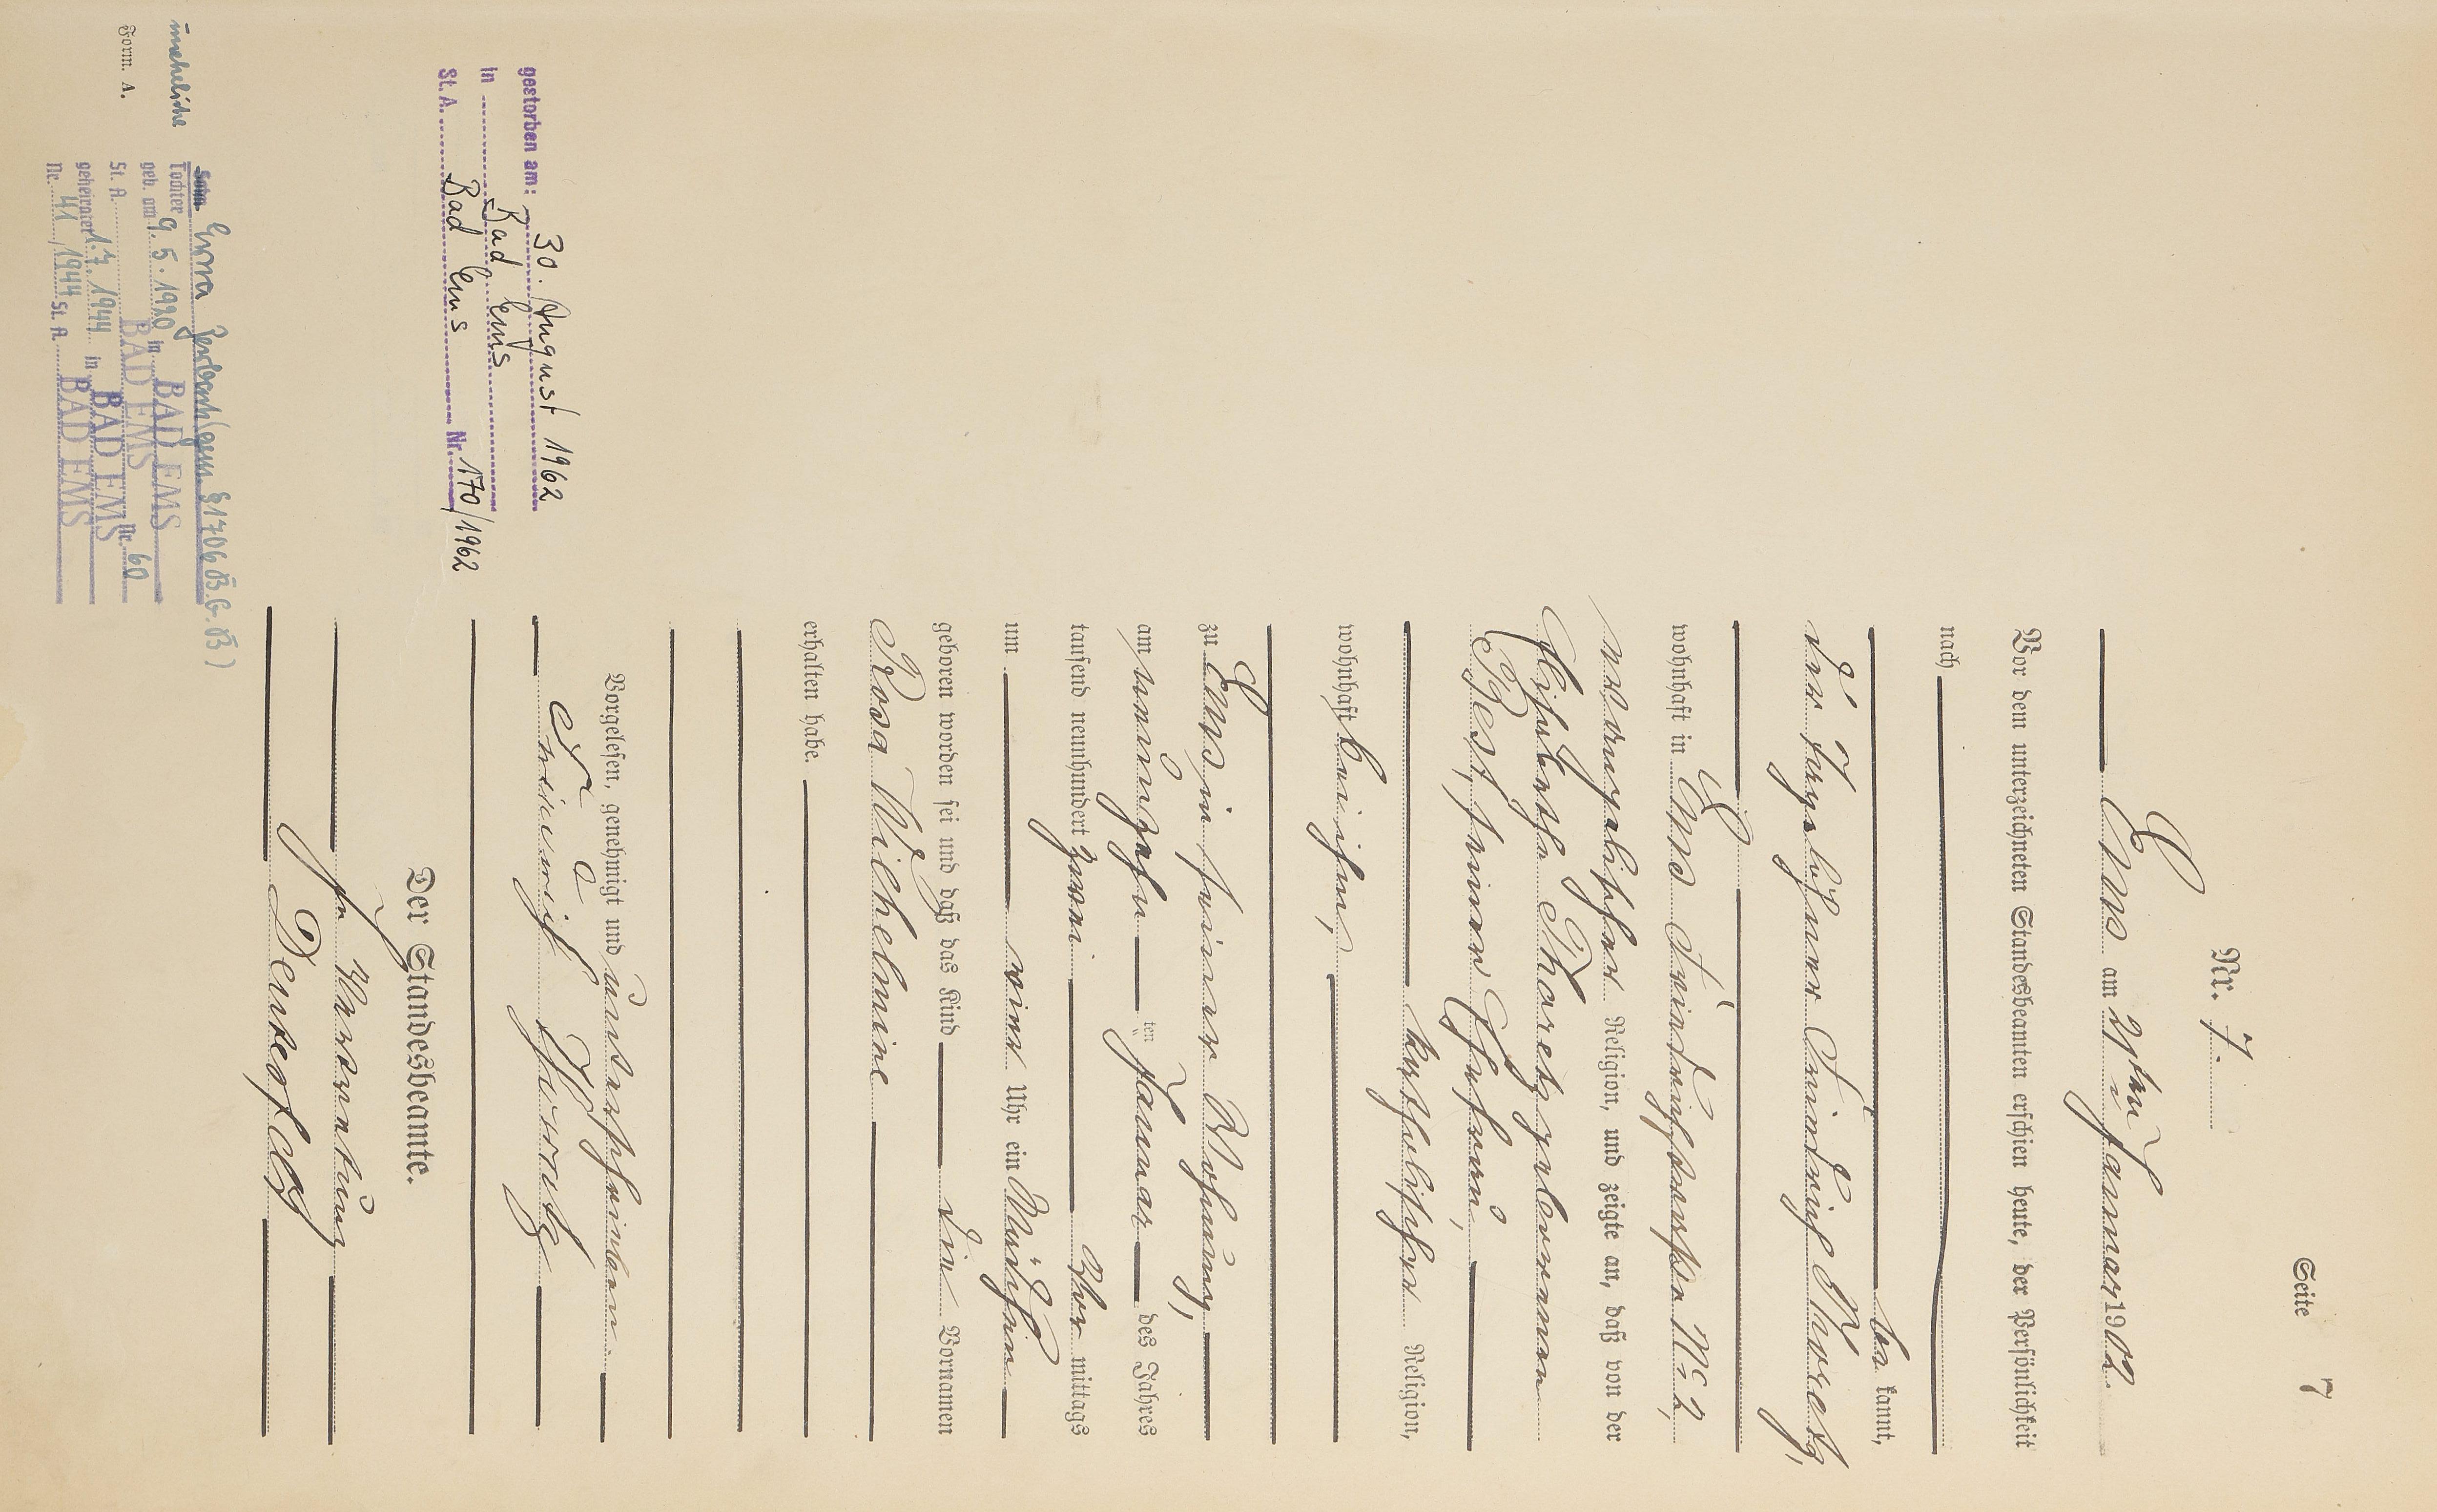 Seite 7
Nr. 7.
Ems am 21ten Januar 1902.
Vor dem unterzeichneten Standesbeamten erschien heute, der Persönlichkeit
nach
be kannt,
der Tagelöhner Friedrich Thoretz,
wohnhaft in Ems Friedrichstraße No 2,
evangelischer Religion, und zeigte an, daß von der
Elisabetha Thoretz geborenen
Best, seiner Ehefrau,
katholischer Religion,
wohnhaft bei ihm,
zu Ems in seiner Wohnung,
am neunzehnten Januar des Jahres
tausend neunhundert zwei Vor mittags
um neun Uhr ein Mädchen
geboren worden sei und daß das Kind die Vornamen
Rosa Wilhelmine
erhalten habe.
Vorgelesen, genehmigt und unterschrieben.
Friedrich Thoretz
Der Standesbeamte.
In Vertretung
gestorben am: 30. August 1962
in Bad Ems
St. A. Bad Ems Nr. 170/1962
uneheliche
Form. A.
Sohn Erna (gem § 1706 B.G.B)
Tochter
geb. am 9.5.1920 in BAD EMS
St. A. BAD EMS Nr. 60
geheiratet 1.7.1944 in BAD EMS
Nr. 41/1944 St. A. BAD EMS